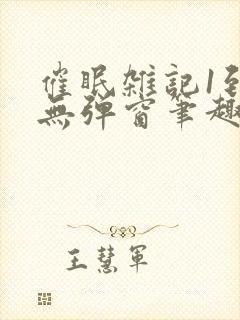 催眠雑記1至
無弹窗筆趣
王慧軍